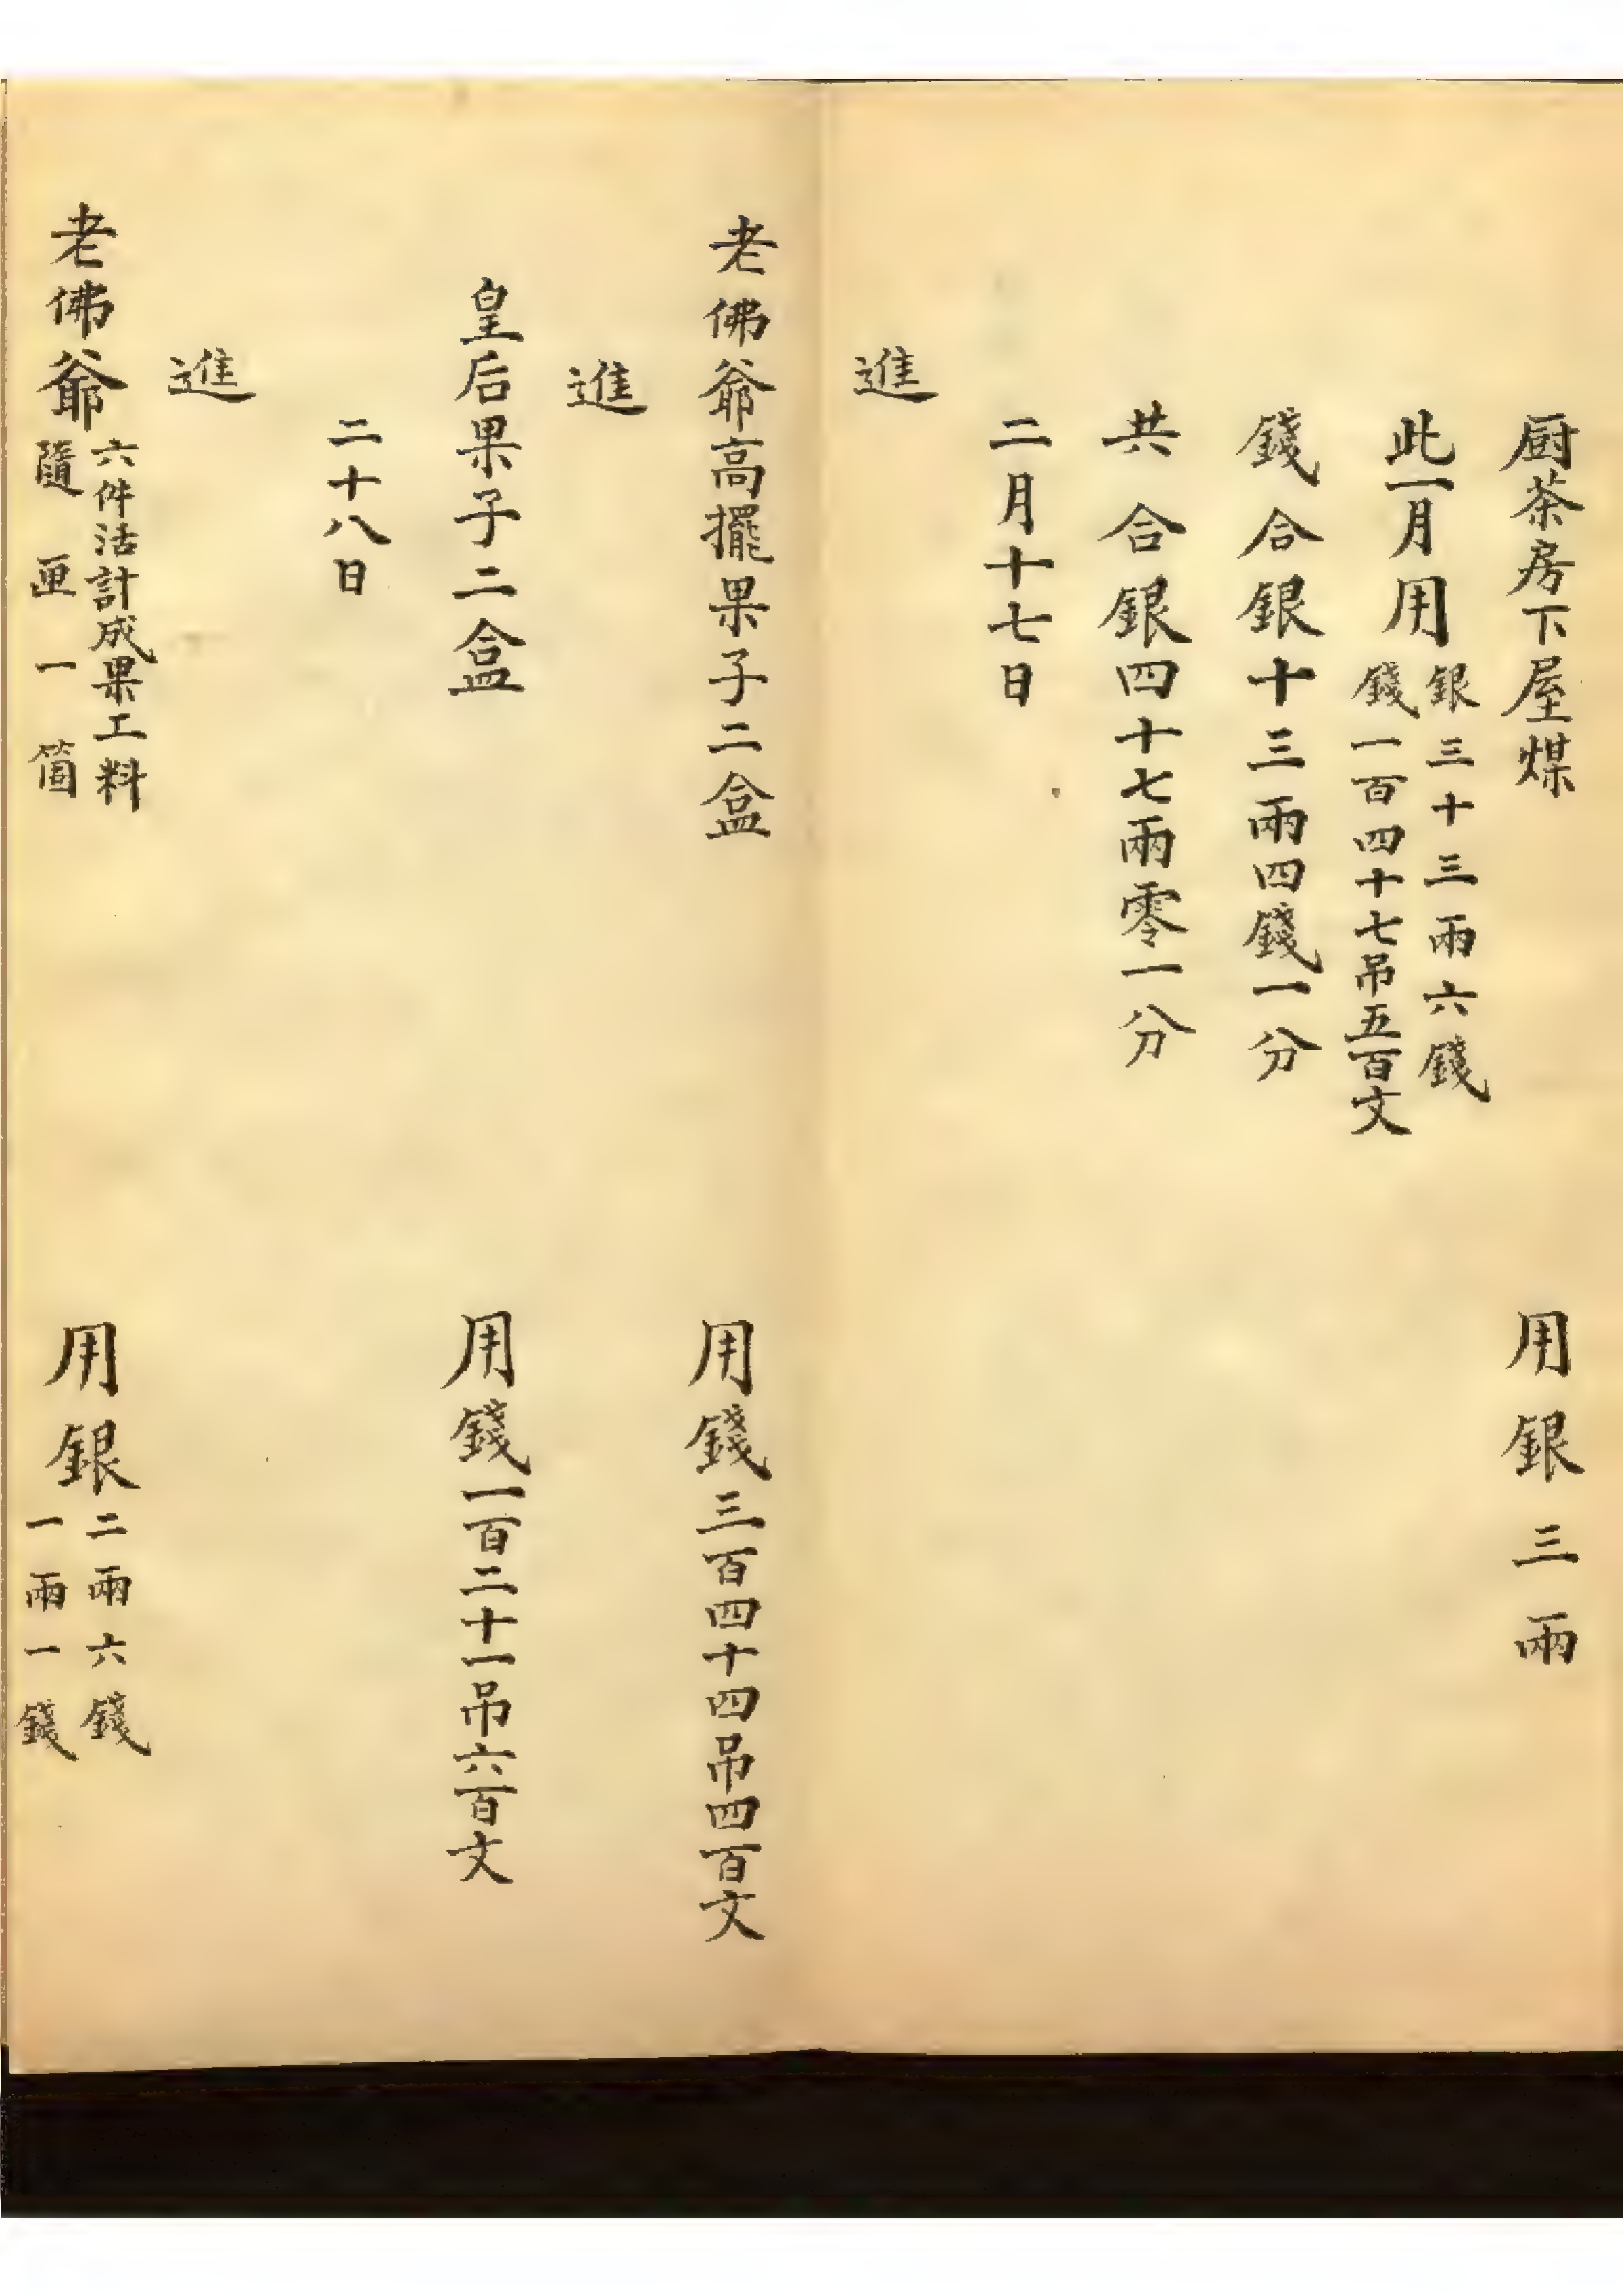 厨茶房下屋煤 用銀三兩
此一月用銀三十三兩六錢
錢一百四十七吊五百文
錢合銀十三兩四錢一分
共合銀四十七兩零一分
二月十七日
進
老佛爺高擺果子二盒 用錢三百四十四吊四百文
進
皇后果子二盒 用錢一百二十一吊六百文
二十八日
進
老佛爺六件活計成果工料 用銀二兩六錢
隨匣一箇 一兩一錢